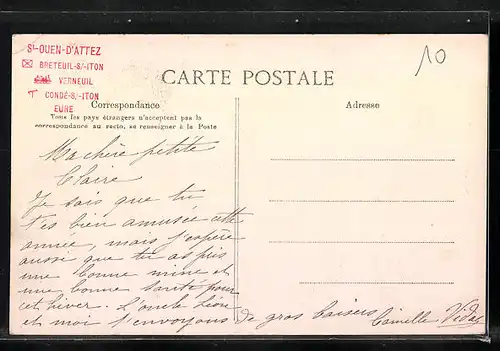 St-OUEN-D'ATTEZ
BRETEUIL-S/-ITON
VERNEUIL
CONDÉ-S/-ITON
EURE
10
CARTE POSTALE
Correspondance
Tous les pays étrangers n'acceptent pas la
correspondance au recto, se renseigner à la Poste
Adresse
Ma chère petite
Claire
Je sais que tu
t'es bien amusée cette
année, mais j'espère
aussi que tu as pris
une bonne mine et
une bonne santé pour
cet hiver. L'oncle Léon
et moi t'envoyons de gros baisers
Camille Vidal